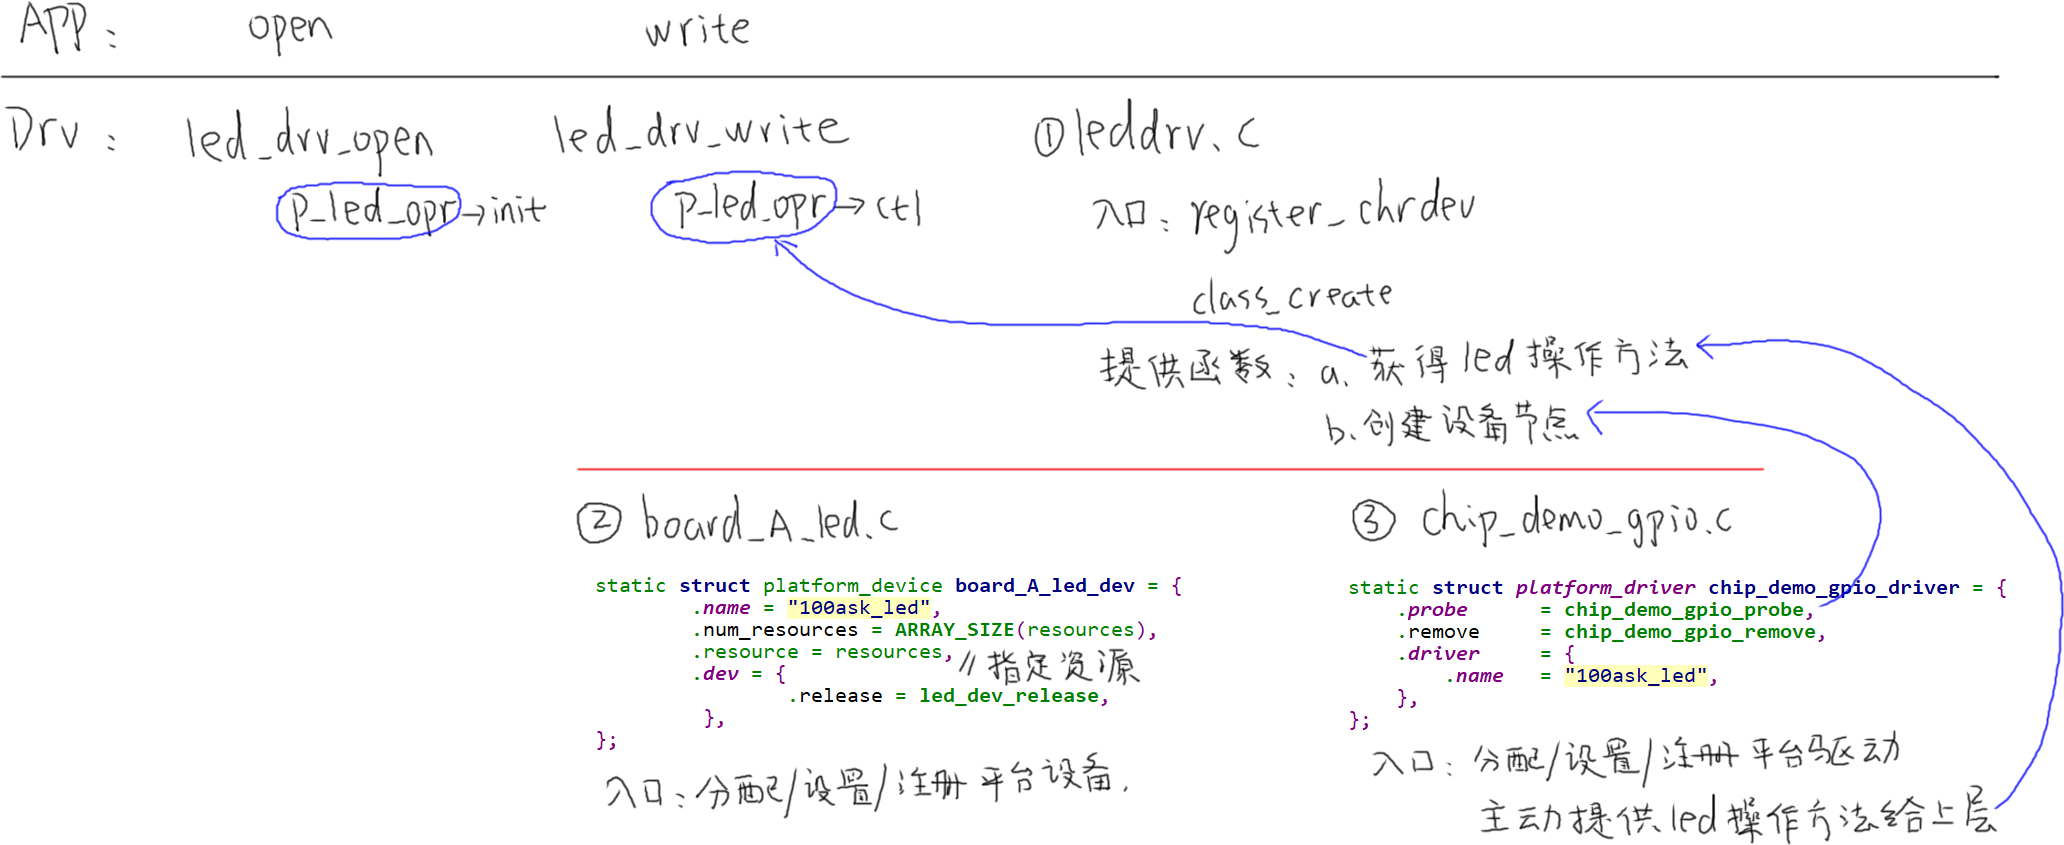 APP： open write
Drv： led_drv_open led_drv_write ①leddrv.c
p_led_opr→init p_led_opr→ctl 入口：register_chrdev
class_create
提供函数：a.获得led操作方法
b.创建设备节点
② board_A_led.c
static struct platform_device board_A_led_dev = {
.name = "100ask_led",
.num_resources = ARRAY_SIZE(resources),
.resource = resources, //指定资源
.dev = {
.release = led_dev_release,
},
};
入口：分配/设置/注册 平台设备.
③ chip_demo_gpio.c
static struct platform_driver chip_demo_gpio_driver = {
.probe = chip_demo_gpio_probe,
.remove = chip_demo_gpio_remove,
.driver = {
.name = "100ask_led",
},
};
入口：分配/设置/注册 平台驱动
主动提供led操作方法给上层